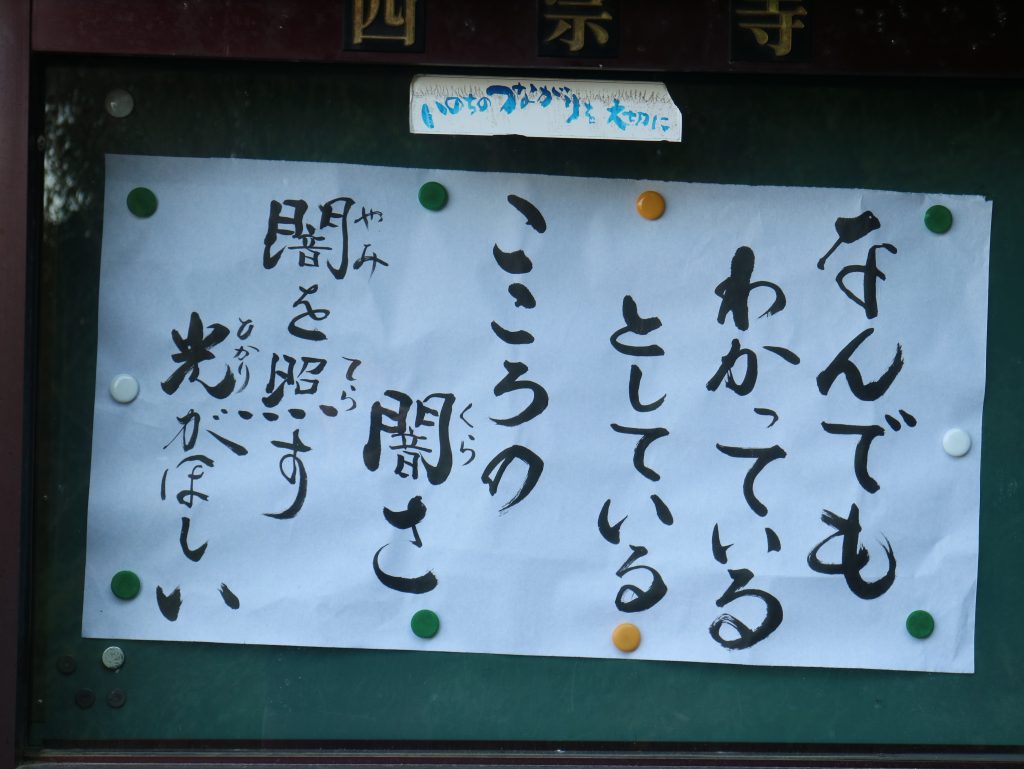 西宗寺
いのちのつながりを大切に
なんでも
わかっている
としている
こころの
くら
闇さ
やみ てら
闇を照す
ひかり
光がほしい